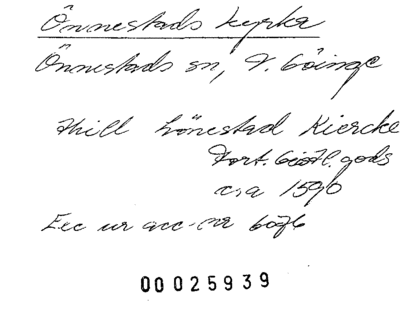 Önnestads kyrka
Önnestads sn, V. Göinge
Thill Lönestad Kiercke
Fort. gods
c:a 1590
Exc ur acc-nr 6076
00025939